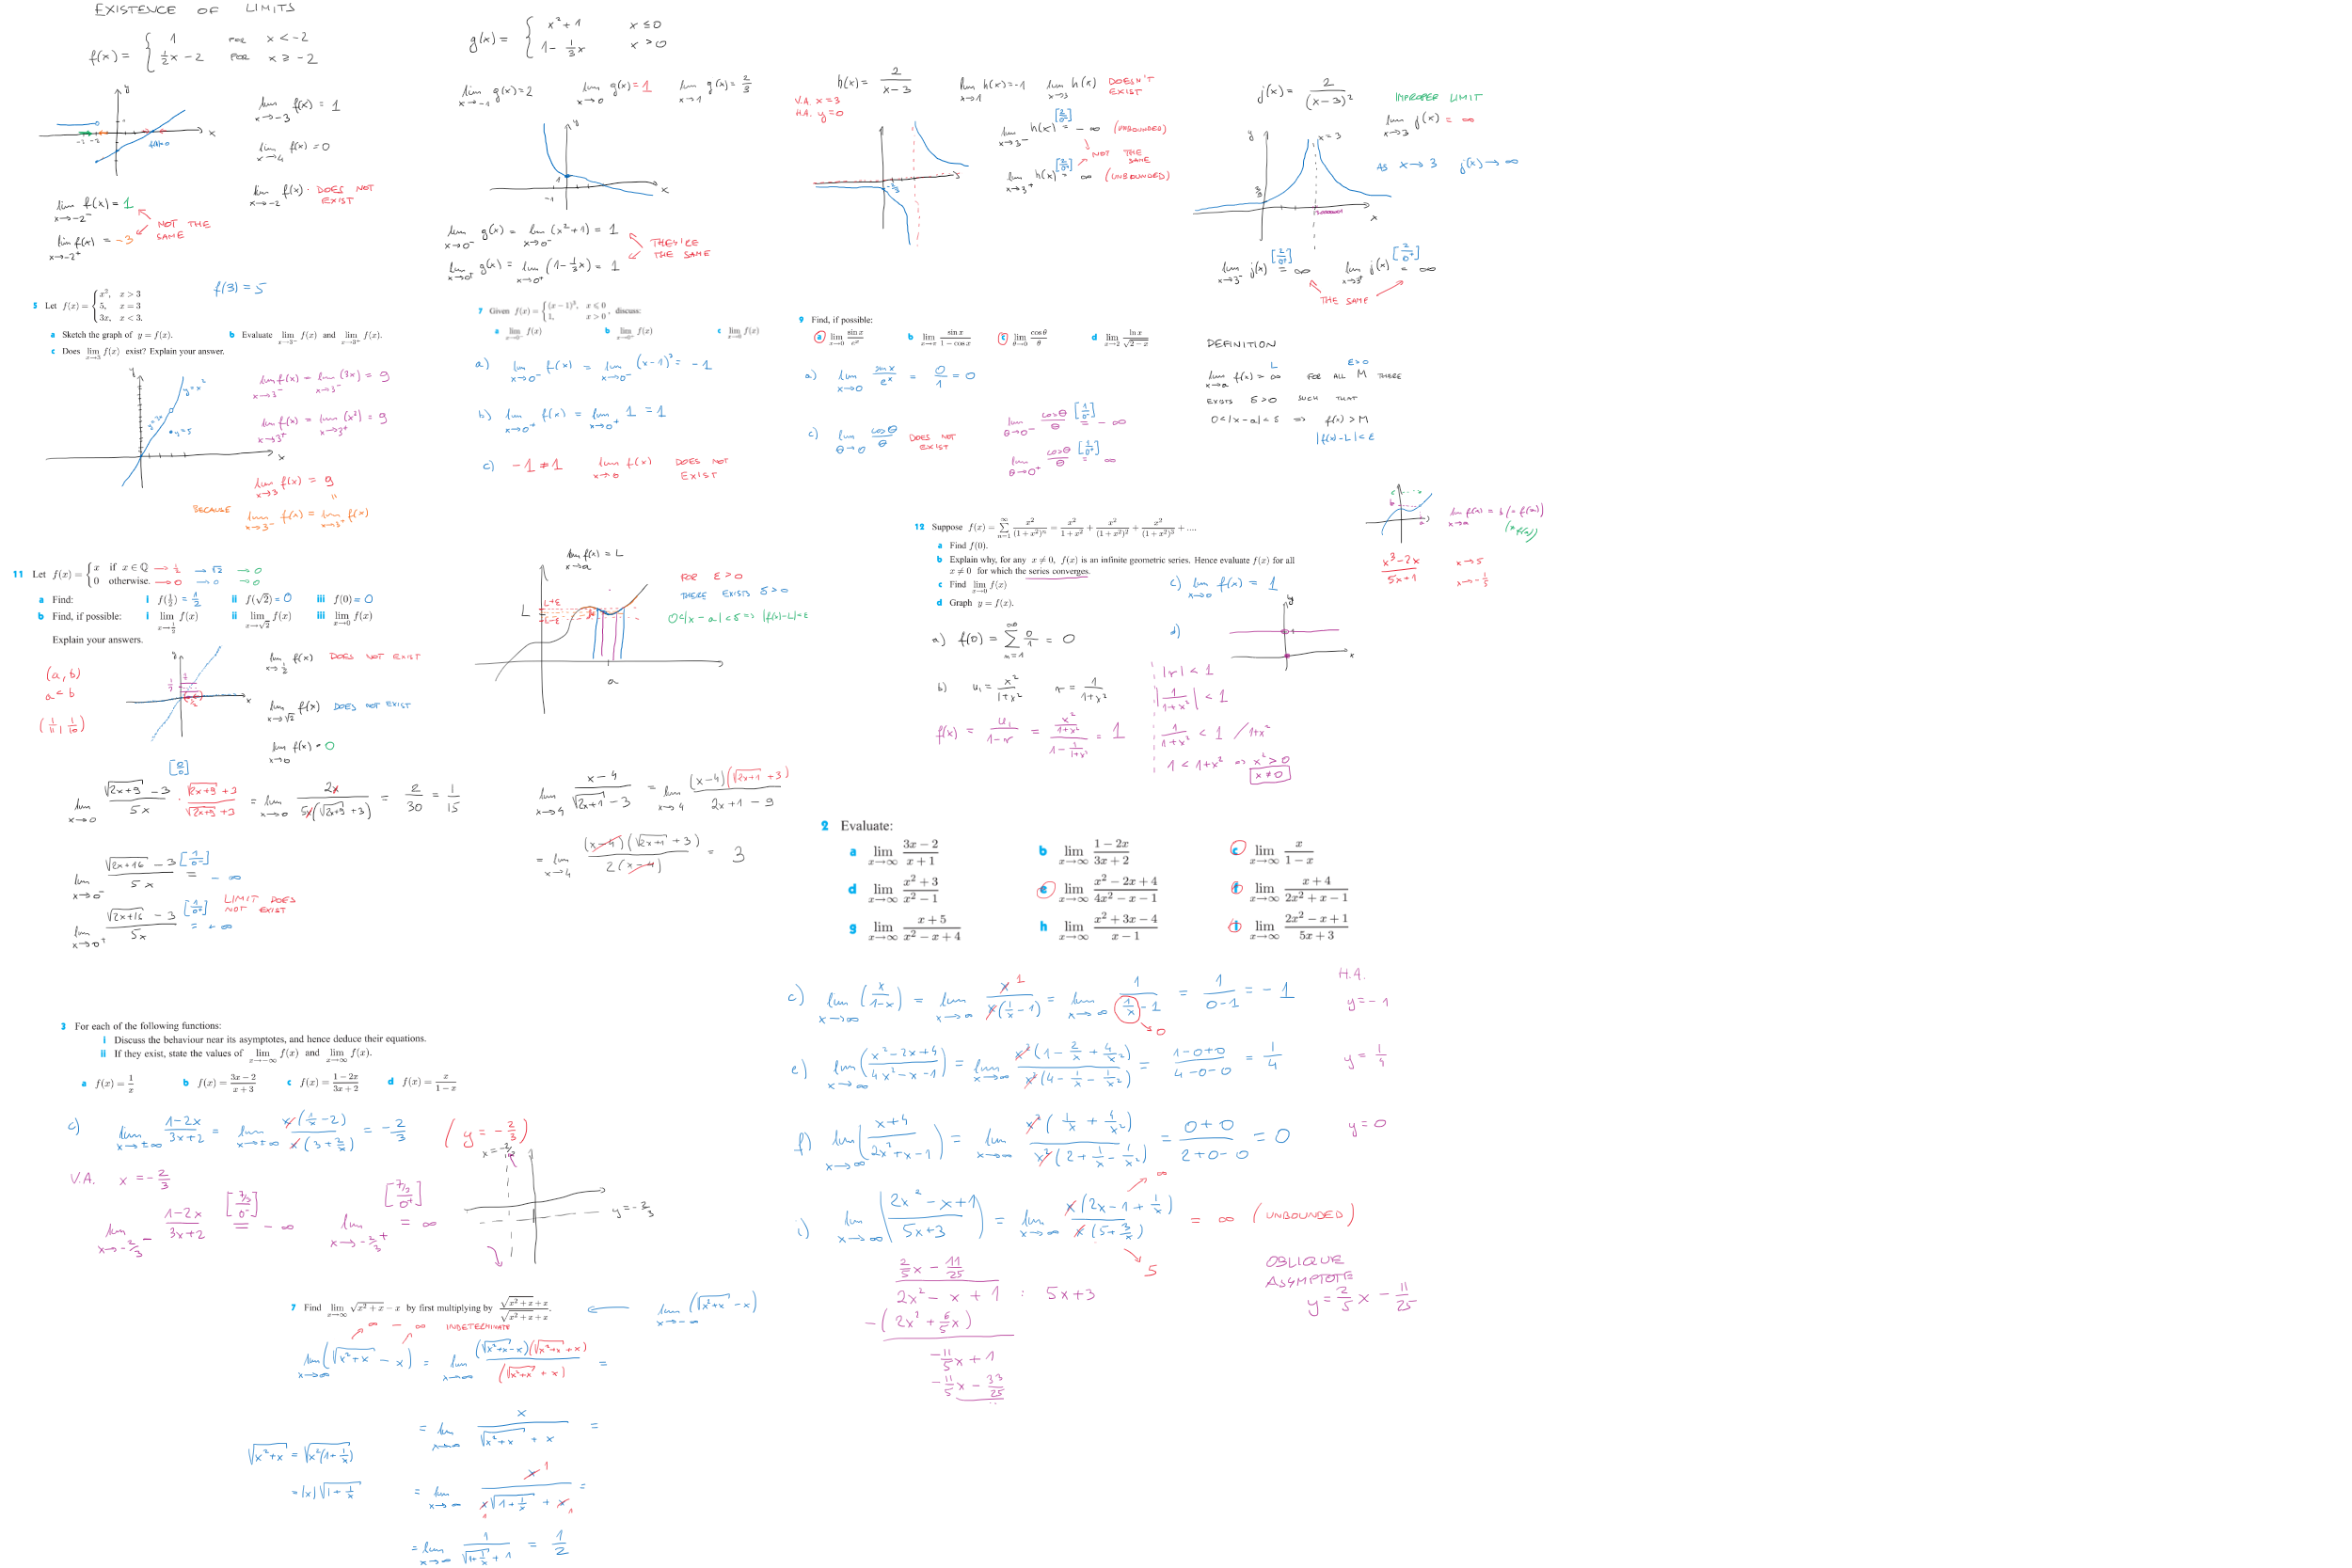 EXISTENCE OF LIMITS
f(x) = { 1 FOR x < -2
1/2 x - 2 FOR x ≥ -2
lim x→-3 f(x) = 1
lim x→4 f(x) = 0
lim x→-2 f(x) - DOES NOT EXIST
lim x→-2⁻ f(x) = 1
lim x→-2⁺ f(x) = -3
NOT THE SAME
g(x) = { x² + 1 x ≤ 0
1 - 1/3 x x > 0
lim x→-1 g(x) = 2 lim x→0 g(x) = 1 lim x→1 g(x) = 2/3
lim x→0⁻ g(x) = lim x→0⁻ (x²+1) = 1
lim x→0⁺ g(x) = lim x→0⁺ (1 - 1/3 x) = 1
THE SAME
h(x) = 2/(x-3)
V.A. x=3
H.A. y=0
lim x→1 h(x) = -1 lim x→3 h(x) DOESN'T EXIST
lim x→3⁻ h(x) [2/0⁻] = -∞ (UNBOUNDED)
NOT THE SAME
lim x→3⁺ h(x) [2/0⁺] = ∞ (UNBOUNDED)
j(x) = 2/(x-3)²
IMPROPER LIMIT
lim x→3 j(x) = ∞
AS x→3 j(x)→∞
x=3
lim x→3⁻ j(x) [2/0⁺] = ∞ lim x→3⁺ j(x) [2/0⁺] = ∞
THE SAME
f(3) = 5
5 Let f(x) = { x², x > 3
5, x = 3
3x, x < 3.
a Sketch the graph of y = f(x). b Evaluate lim x→3⁻ f(x) and lim x→3⁺ f(x).
c Does lim x→3 f(x) exist? Explain your answer.
y=x²
y=3x
y=5
lim x→3⁻ f(x) = lim x→3⁻ (3x) = 9
lim x→3⁺ f(x) = lim x→3⁺ (x²) = 9
lim x→3 f(x) = 9
BECAUSE lim x→3⁻ f(x) = lim x→3⁺ f(x)
7 Given f(x) = { (x-1)³, x ⩽ 0
1, x > 0, discuss:
a lim x→0⁻ f(x) b lim x→0⁺ f(x) c lim x→0 f(x)
a) lim x→0⁻ f(x) = lim x→0⁻ (x-1)³ = -1
b) lim x→0⁺ f(x) = lim x→0⁺ 1 = 1
c) -1 ≠ 1 lim x→0 f(x) DOES NOT EXIST
9 Find, if possible:
a lim x→0 sin x/eˣ b lim x→π sin x/(1 - cos x) c lim θ→0 cos θ/θ d lim x→2 ln x/√(2-x)
a) lim x→0 sin x/eˣ = 0/1 = 0
c) lim θ→0 cos θ/θ DOES NOT EXIST
lim θ→0⁻ cos θ/θ [1/0⁻] = -∞
lim θ→0⁺ cos θ/θ [1/0⁺] = ∞
DEFINITION
lim x→a f(x) = ∞ FOR ALL M THERE
L ε>0
EXISTS δ>0 SUCH THAT
0<|x-a|<δ ⇒ f(x)>M
|f(x)-L|<ε
11 Let f(x) = { x if x ∈ ℚ → 1/2 → √2 → 0
0 otherwise. → 0 → 0 → 0
a Find: i f(1/2) = 1/2 ii f(√2) = 0 iii f(0) = 0
b Find, if possible: i lim x→1/2 f(x) ii lim x→√2 f(x) iii lim x→0 f(x)
Explain your answers.
(a, b)
a < b
(1/11, 1/10)
lim x→1/2 f(x) DOES NOT EXIST
lim x→√2 f(x) DOES NOT EXIST
lim x→0 f(x) = 0
lim x→a f(x) = L
L+ε
L
L-ε
a
FOR ε>0
THERE EXISTS δ>0
0<|x-a|<δ ⇒ |f(x)-L|<ε
12 Suppose f(x) = ∑ n=1 ∞ x²/(1+x²)ⁿ = x²/(1+x²) + x²/(1+x²)² + x²/(1+x²)³ + ....
a Find f(0).
b Explain why, for any x ≠ 0, f(x) is an infinite geometric series. Hence evaluate f(x) for all
x ≠ 0 for which the series converges.
c Find lim x→0 f(x)
d Graph y = f(x).
c) lim x→0 f(x) = 1
a) f(0) = ∑ n=1 ∞ 0/1 = 0
d)
b) u₁ = x²/(1+x²) r = 1/(1+x²)
f(x) = u₁/(1-r) = (x²/(1+x²))/(1 - 1/(1+x²)) = 1
|r| < 1
|1/(1+x²)| < 1
1/(1+x²) < 1 /1+x²
1 < 1+x² ⇒ x² > 0
x ≠ 0
lim x→a f(x) = b (= f(a))
(≠ f(a))
(x³-2x)/(5x+1) x→5
x→-1/5
[0/0]
lim x→0 (√(2x+9) - 3)/5x · (√(2x+9) + 3)/(√(2x+9) + 3) = lim x→0 2x/(5x(√(2x+9) + 3)) = 2/30 = 1/15
lim x→4 (x-4)/(√(2x+1) - 3) = lim x→4 (x-4)(√(2x+1) + 3)/(2x+1-9)
= lim x→4 (x-4)(√(2x+1) + 3)/(2(x-4)) = 3
lim x→0⁻ (√(2x+16) - 3)/5x [1/0⁻] = -∞
lim x→0⁺ (√(2x+16) - 3)/5x [1/0⁺] = +∞
LIMIT DOES NOT EXIST
2 Evaluate:
a lim x→∞ (3x-2)/(x+1) b lim x→∞ (1-2x)/(3x+2) c lim x→∞ x/(1-x)
d lim x→∞ (x²+3)/(x²-1) e lim x→∞ (x²-2x+4)/(4x²-x-1) f lim x→∞ (x+4)/(2x²+x-1)
g lim x→∞ (x+5)/(x²-x+4) h lim x→∞ (x²+3x-4)/(x-1) i lim x→∞ (2x²-x+1)/(5x+3)
c) lim x→∞ (x/(1-x)) = lim x→∞ x/(x(1/x - 1)) = lim x→∞ 1/(1/x - 1) = 1/(0-1) = -1
H.A.
y = -1
e) lim x→∞ ((x²-2x+4)/(4x²-x-1)) = lim x→∞ x²(1 - 2/x + 4/x²)/(x²(4 - 1/x - 1/x²)) = (1-0+0)/(4-0-0) = 1/4
y = 1/4
f) lim x→∞ ((x+4)/(2x²+x-1)) = lim x→∞ x²(1/x + 4/x²)/(x²(2 + 1/x - 1/x²)) = (0+0)/(2+0-0) = 0
y = 0
i) lim x→∞ ((2x²-x+1)/(5x+3)) = lim x→∞ x(2x - 1 + 1/x)/(x(5 + 3/x)) = ∞ (UNBOUNDED)
∞
5
2/5 x - 11/25
2x² - x + 1 : 5x+3
-(2x² + 6/5 x)
-11/5 x + 1
-11/5 x - 33/25
OBLIQUE
ASYMPTOTE
y = 2/5 x - 11/25
3 For each of the following functions:
i Discuss the behaviour near its asymptotes, and hence deduce their equations.
ii If they exist, state the values of lim x→-∞ f(x) and lim x→∞ f(x).
a f(x) = 1/x b f(x) = (3x-2)/(x+3) c f(x) = (1-2x)/(3x+2) d f(x) = x/(1-x)
c) lim x→±∞ (1-2x)/(3x+2) = lim x→±∞ x(1/x - 2)/(x(3 + 2/x)) = -2/3 (y = -2/3)
x = -2/3
V.A. x = -2/3
lim x→-2/3⁻ (1-2x)/(3x+2) [7/3/0⁻] = -∞ lim x→-2/3⁺ [7/3/0⁺] = ∞
y = -2/3
7 Find lim x→∞ √(x²+x) - x by first multiplying by (√(x²+x) + x)/(√(x²+x) + x).
lim x→-∞ (√(x²+x) - x)
∞ - ∞ INDETERMINATE
lim x→∞ (√(x²+x) - x) = lim x→∞ (√(x²+x) - x)(√(x²+x) + x)/(√(x²+x) + x) =
= lim x→∞ x/(√(x²+x) + x) =
√(x²+x) = √(x²(1+1/x))
= |x|√(1+1/x)
= lim x→∞ x/(x√(1+1/x) + x) =
= lim x→∞ 1/(√(1+1/x) + 1) = 1/2